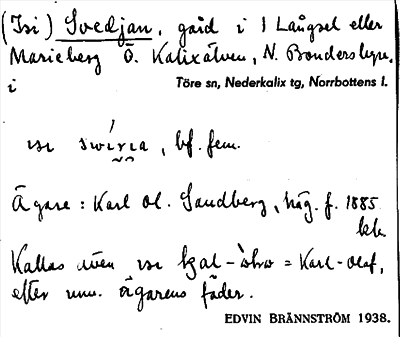 (Isi) Svedjan, gård i 1 Långsel eller
Marieberg Ö. Kalixälven, N. Bondersbyn,
i Töre sn, Nederkalix tg, Norrbottens l.
isi , bf. fem.
Ägare: Karl Ol. Sandberg, någ. f. 1885
Kallas även isi = Karl-Olof,
efter nuv. ägarens fader.
EDVIN BRÄNNSTRÖM 1938.